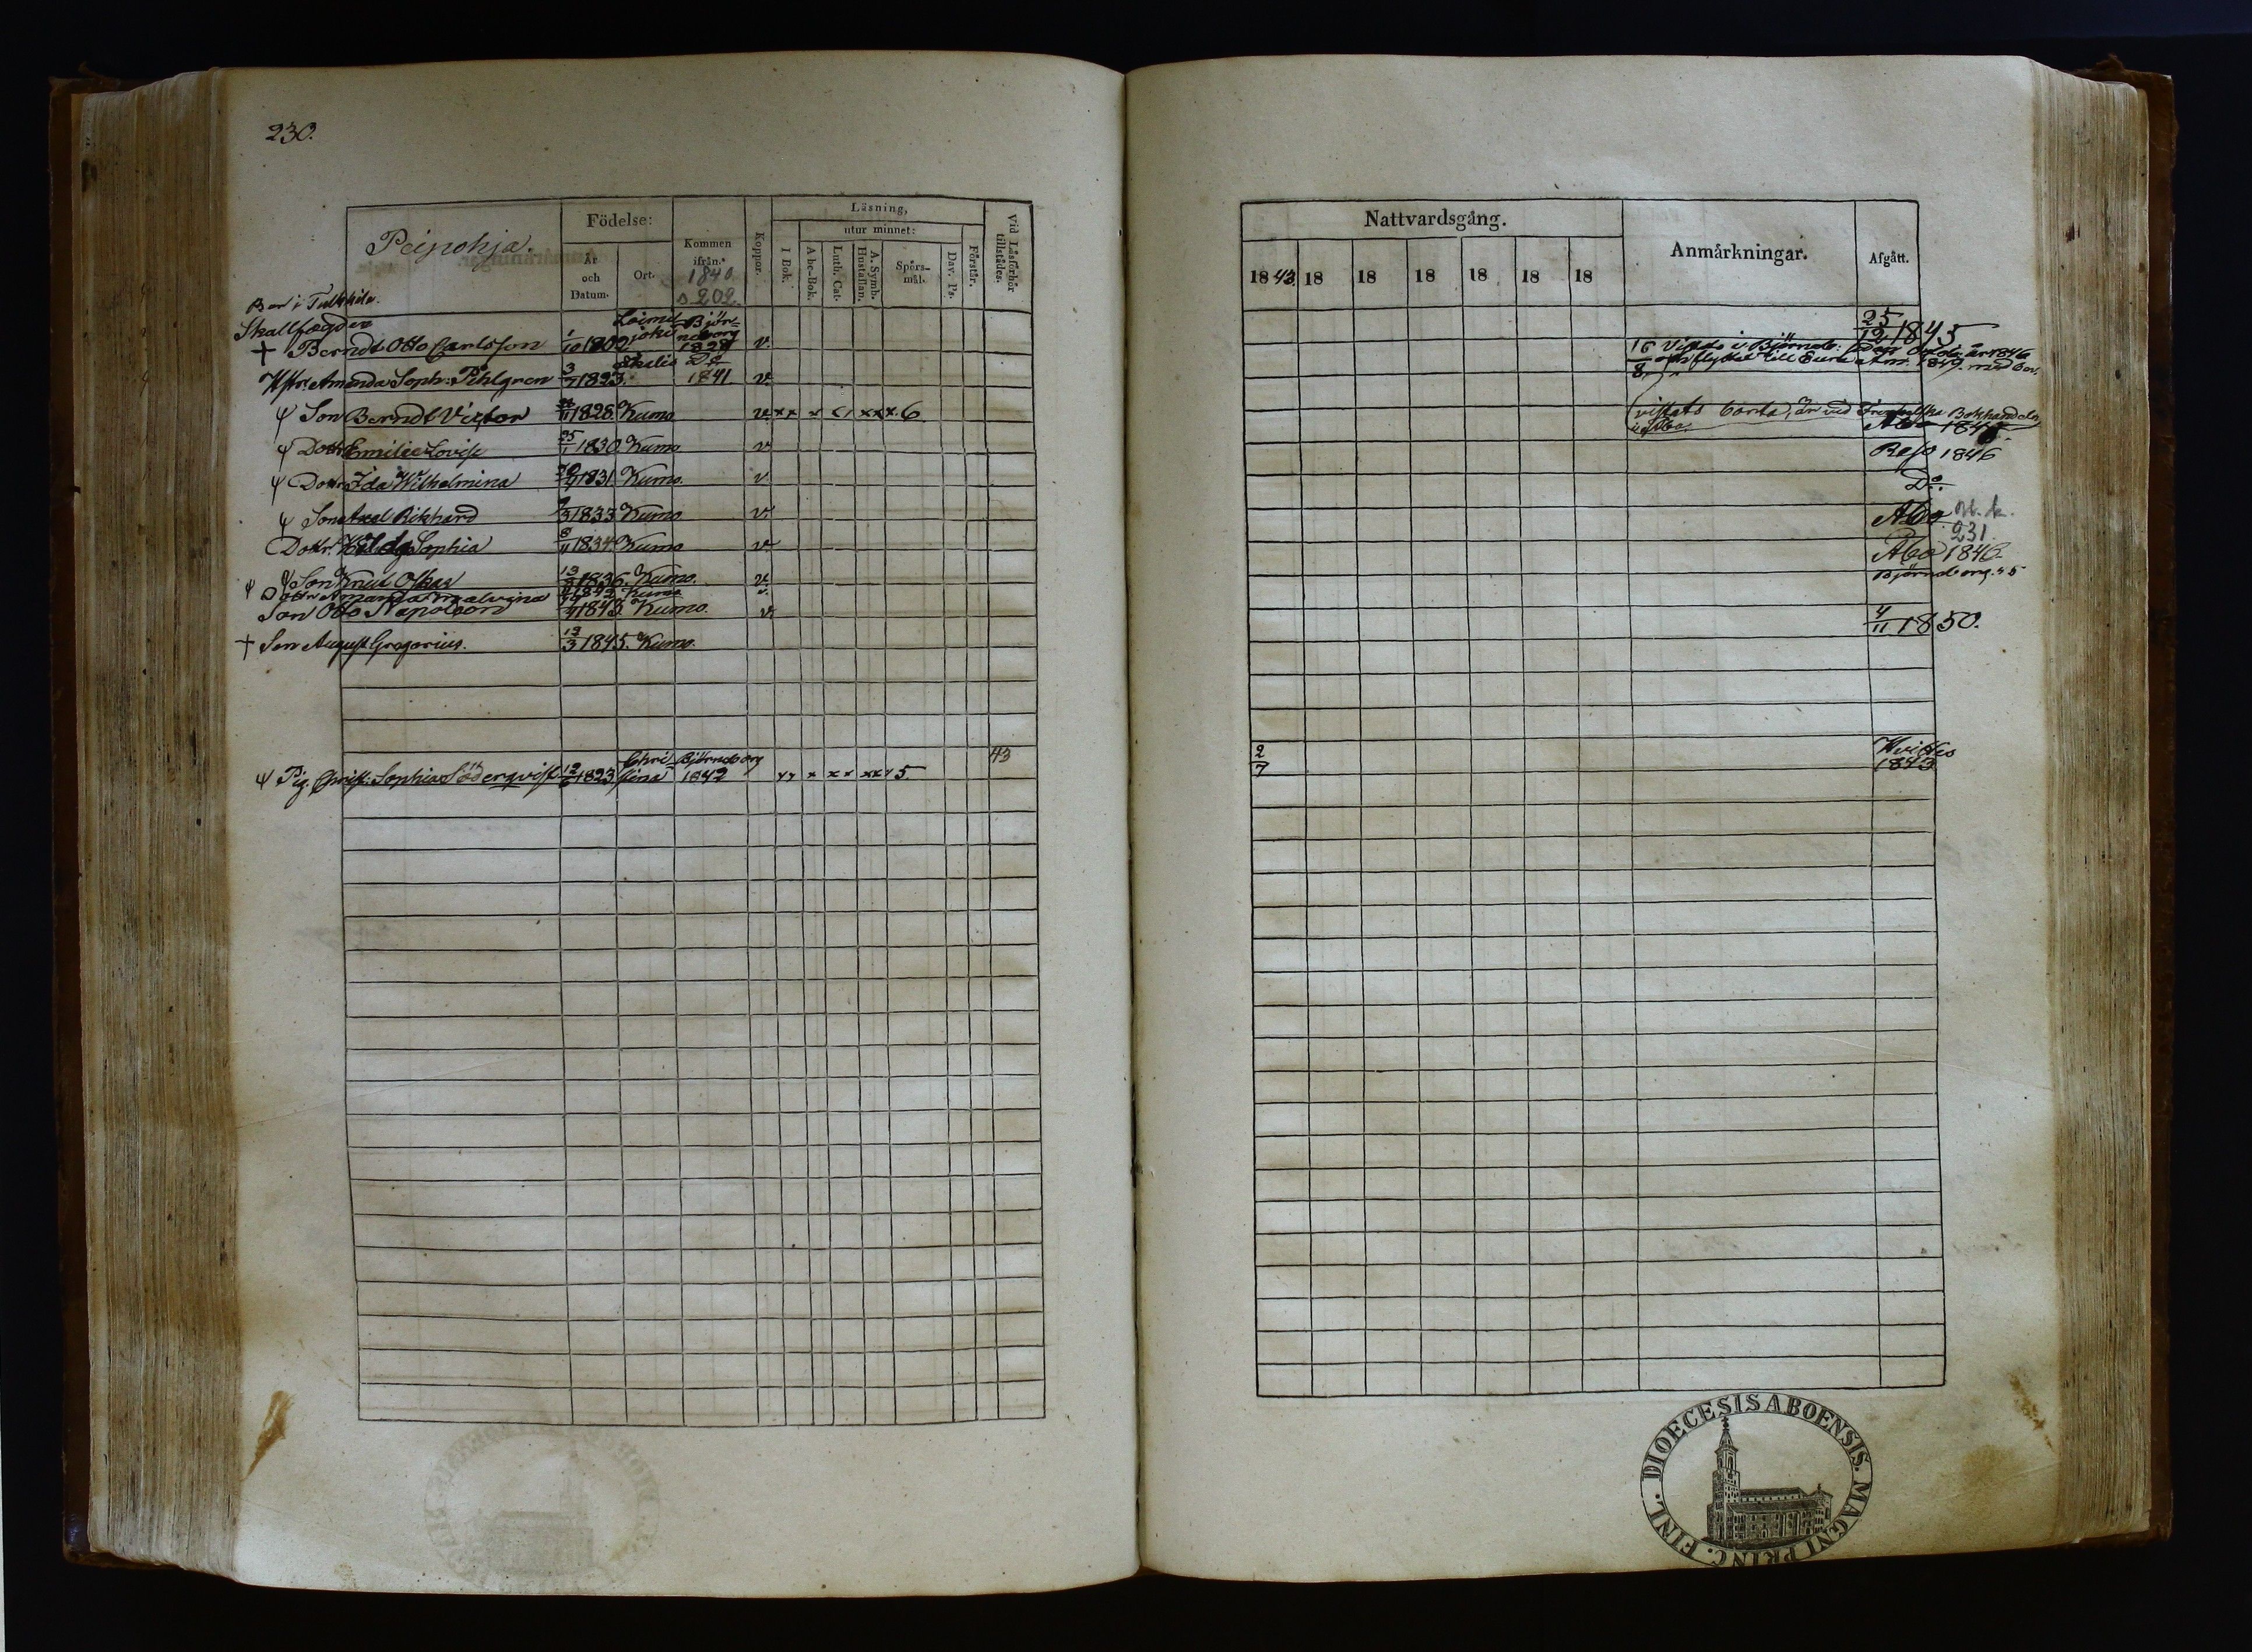 230.
Peipohja.
Födelse:
År och Datum.
Ort.
Kommen ifrån.
1840
s 202.
Koppor.
Läsning,
utur minnet:
I Bok.
Abc-Bok.
Luth. Cat.
A. Symb. Hustaflan.
Spörs-mål.
Dav. Ps.
Förstår.
Vid Läsförhör tillstädes.
Bor i Tulkkila.
Skallfogden
† Berndt Otto Carlsson 1/10 1809 Loimijoki Björneborg 1828 v.
Hstr. Amanda Soph: Pihlgren 3/7 1823. Do 1841. v
Son Berndt Victor 1828 Kumo v x x x x x x. 6.
Dottr Emilie Lovise 25/1 1830 Kumo v
Dottr Ida Wilhelmina 1831 Kumo. v
Son Axel Rikhard 1833 Kumo v.
Dottr. Hilda Sophia 8/11 1834 Kumo v
Son Knut Oskar 1836. Kumo. v
Dottr Amanda Malvina 1842. Kumo v.
Son Otto Napoleon 1843 Kumo. v
† Son August Gregorius. 13/3 1845. Kumo.
Pig. Christ: Sophia Söderqvist 1823 Christina Björneborg 1842 x x x x x x x x 5 43
Nattvardsgång.
1843. 18 18 18 18 18 18
Anmärkningar.
Afgått.
25/12 1845
16/8 Vistas i Björneb: år 1846
och flyttat till Eura 1849. med
vistats borta, är vid Frenckelska Bokhandeln
i Åbo. Åbo 184
Reso 1846
Do.
Åbo
231.
Åbo 1846
Björneborg. 45
4/11 1850.
2/7
Hvittis
1843
DIOECESIS ABOENSIS. MAGNI PRINC. FINL.